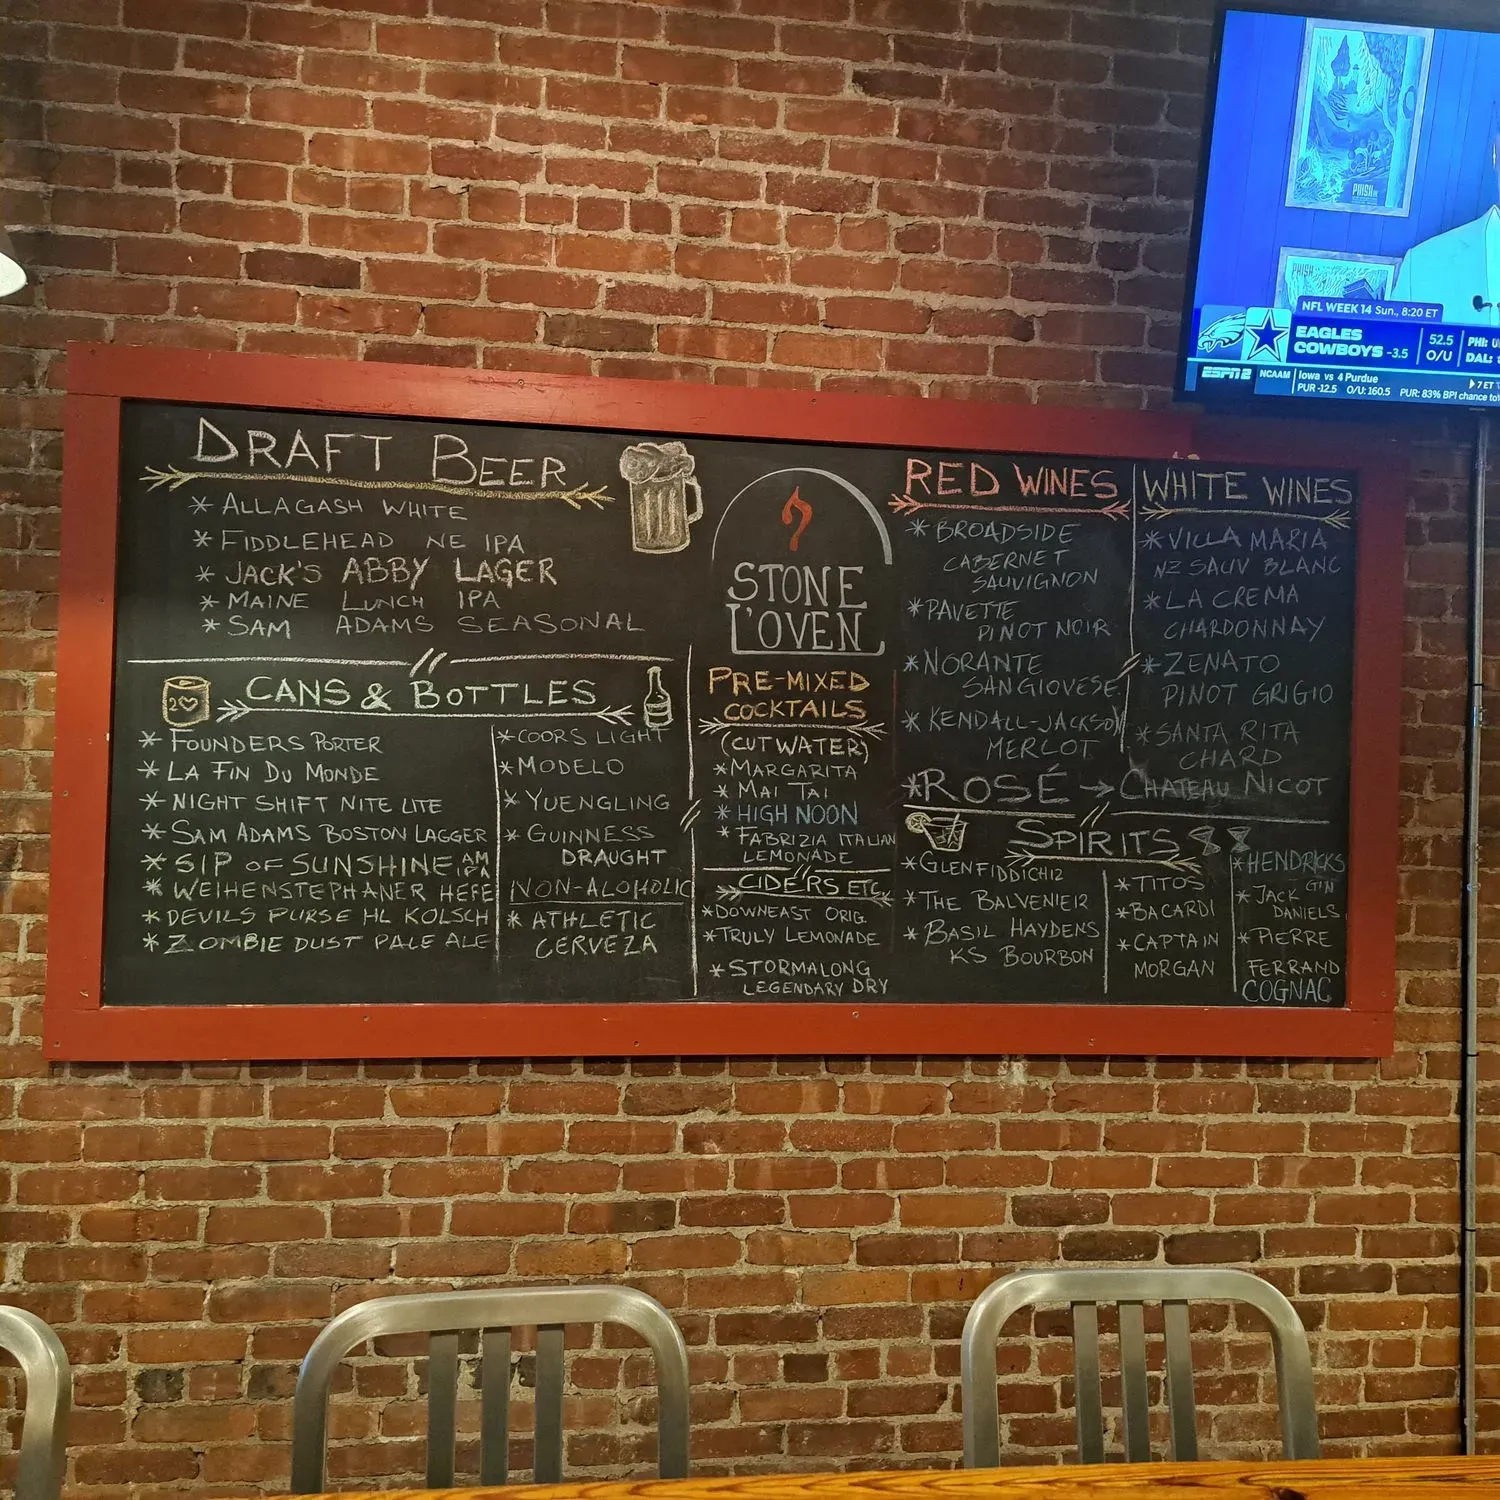 DRAFT BEER
* ALLAGASH WHITE
* FIDDLEHEAD NE IPA
* JACK'S ABBY LAGER
* MAINE LUNCH IPA
* SAM ADAMS SEASONAL
CANS & BOTTLES
* FOUNDERS PORTER
* LA FIN DU MONDE
* NIGHT SHIFT NITE LITE
* SAM ADAMS BOSTON LAGGER
* SIP OF SUNSHINE AM
IPA
* WEIHENSTEPHANER HEFE
* DEVILS PURSE HL KOLSCH
* ZOMBIE DUST PALE ALE
* COORS LIGHT
* MODELO
* YUENGLING
* GUINNESS
DRAUGHT
NON-ALOHOLIC
* ATHLETIC
CERVEZA
STONE
L'OVEN
PRE-MIXED
COCKTAILS
(CUTWATER)
* MARGARITA
* MAI TAI
* HIGH NOON
* FABRIZIA ITALIAN
LEMONADE
CIDERS ETC
* DOWNEAST ORIG.
* TRULY LEMONADE
* STORMALONG
LEGENDARY DRY
RED WINES
* BROADSIDE
CABERNET
SAUVIGNON
* PAVETTE
PINOT NOIR
* NORANTE
SANGIOVESE
* KENDALL-JACKSON
MERLOT
WHITE WINES
* VILLA MARIA
NZ SAUV BLANC
* LA CREMA
CHARDONNAY
* ZENATO
PINOT GRIGIO
* SANTA RITA
CHARD
* ROSÉ → CHATEAU NICOT
SPIRITS
* GLENFIDDICH12
* THE BALVENIE12
* BASIL HAYDENS
KS BOURBON
* TITOS
* BACARDI
* CAPTAIN
MORGAN
* HENDRICKS
GIN
* JACK
DANIELS
* PIERRE
FERRAND
COGNAC
PHISH
PHISH
NFL WEEK 14 Sun., 8:20 ET
EAGLES
COWBOYS -3.5
52.5
O/U
PHI:
DAL:
ESPN2
NCAAM
Iowa vs 4 Purdue
7 ET
PUR -12.5 O/U: 160.5 PUR: 83% BPI chance to